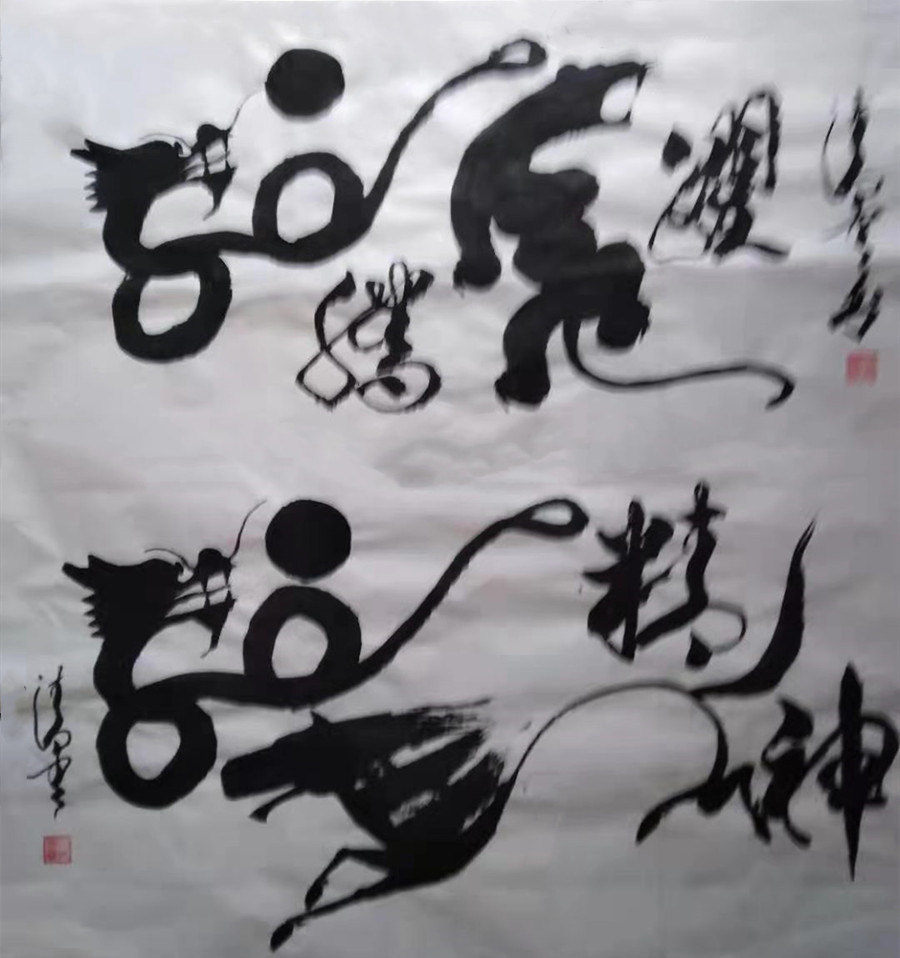 龙腾虎躍
龙马精神